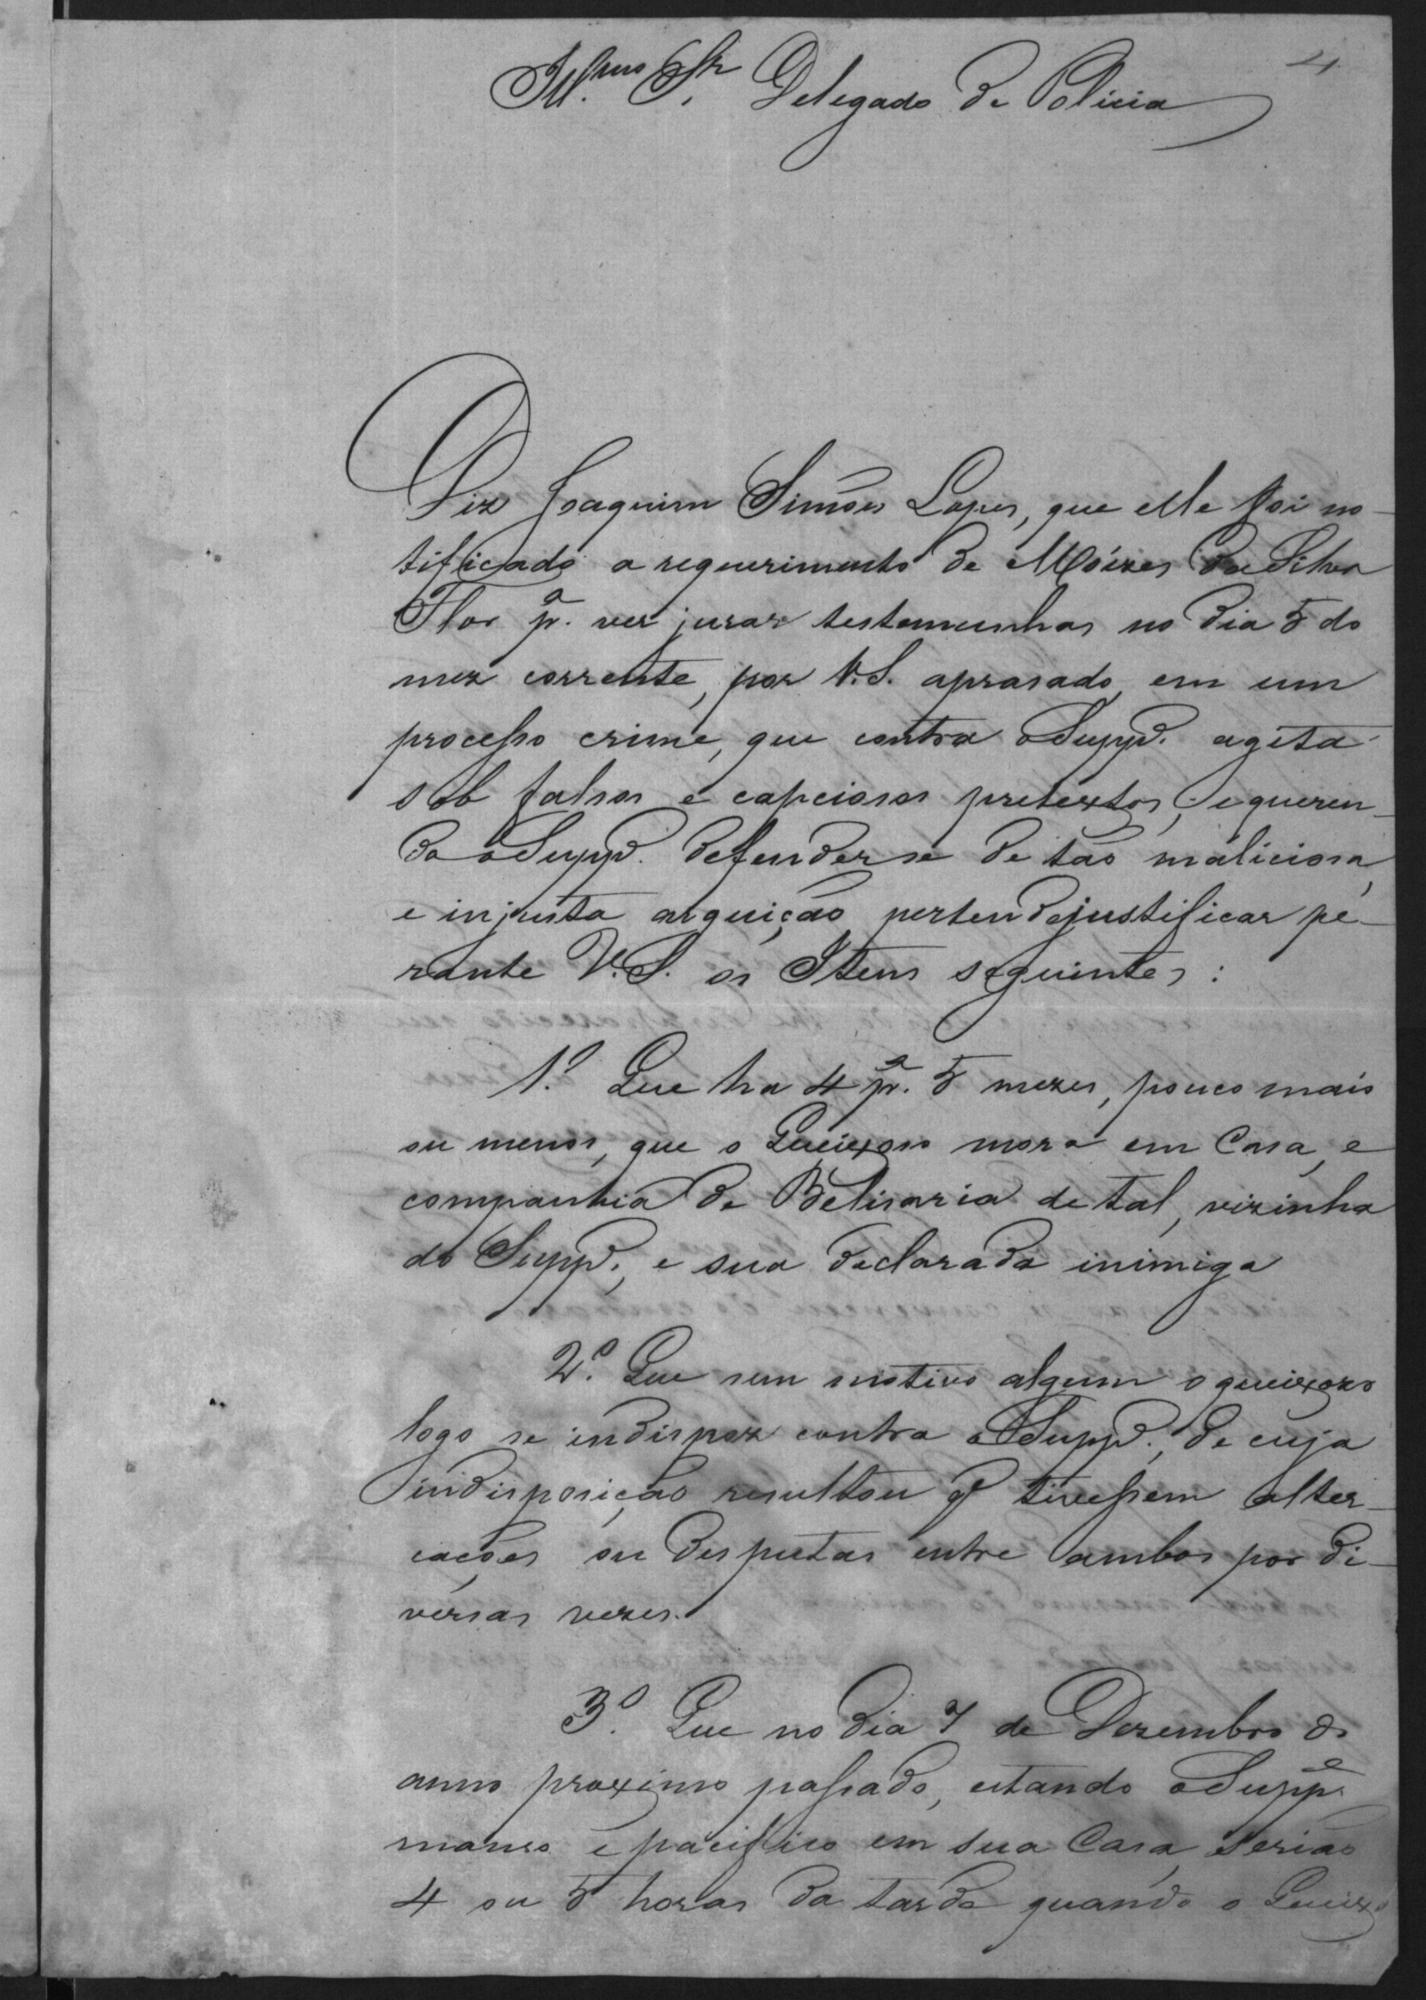 4
Ill.mo Sr. Delegado de Policia
Diz Joaquim Simões Lopes, que elle foi no-
tificado a requerimento de Moizes da Silva
Flor p.a ver jurar testemunhas no dia 5 do
mez corrente, por V.S. aprasado, em um
processo crime, que contra o Supp.e agita
sob falsos e capciosos pretextos, e queren-
do o Supp.e defender se de tão maliciosa,
e injusta arguição pertende justificar pe-
rante V.S. os Itens seguintes:
1.o Que ha 4 p.a 5 mezes, pouco mais
ou menos, que o Queixoso mora em Casa, e
companhia de Belisaria de tal, vizinha
do Supp.e, e sua declarada inimiga
2.o Que sem motivo algum o queixozo
logo se indispoz contra o Supp.e, de cuja
indisposição resultou q tivessem alter-
cações ou desputas entre ambos por di-
versas vezes.
3.o Que no dia 7 de Dezembro do
anno proximo passado, estando o Supp.e
manso e pacifico em sua Casa, serião
4 ou 5 horas da tarde quando o Queixo